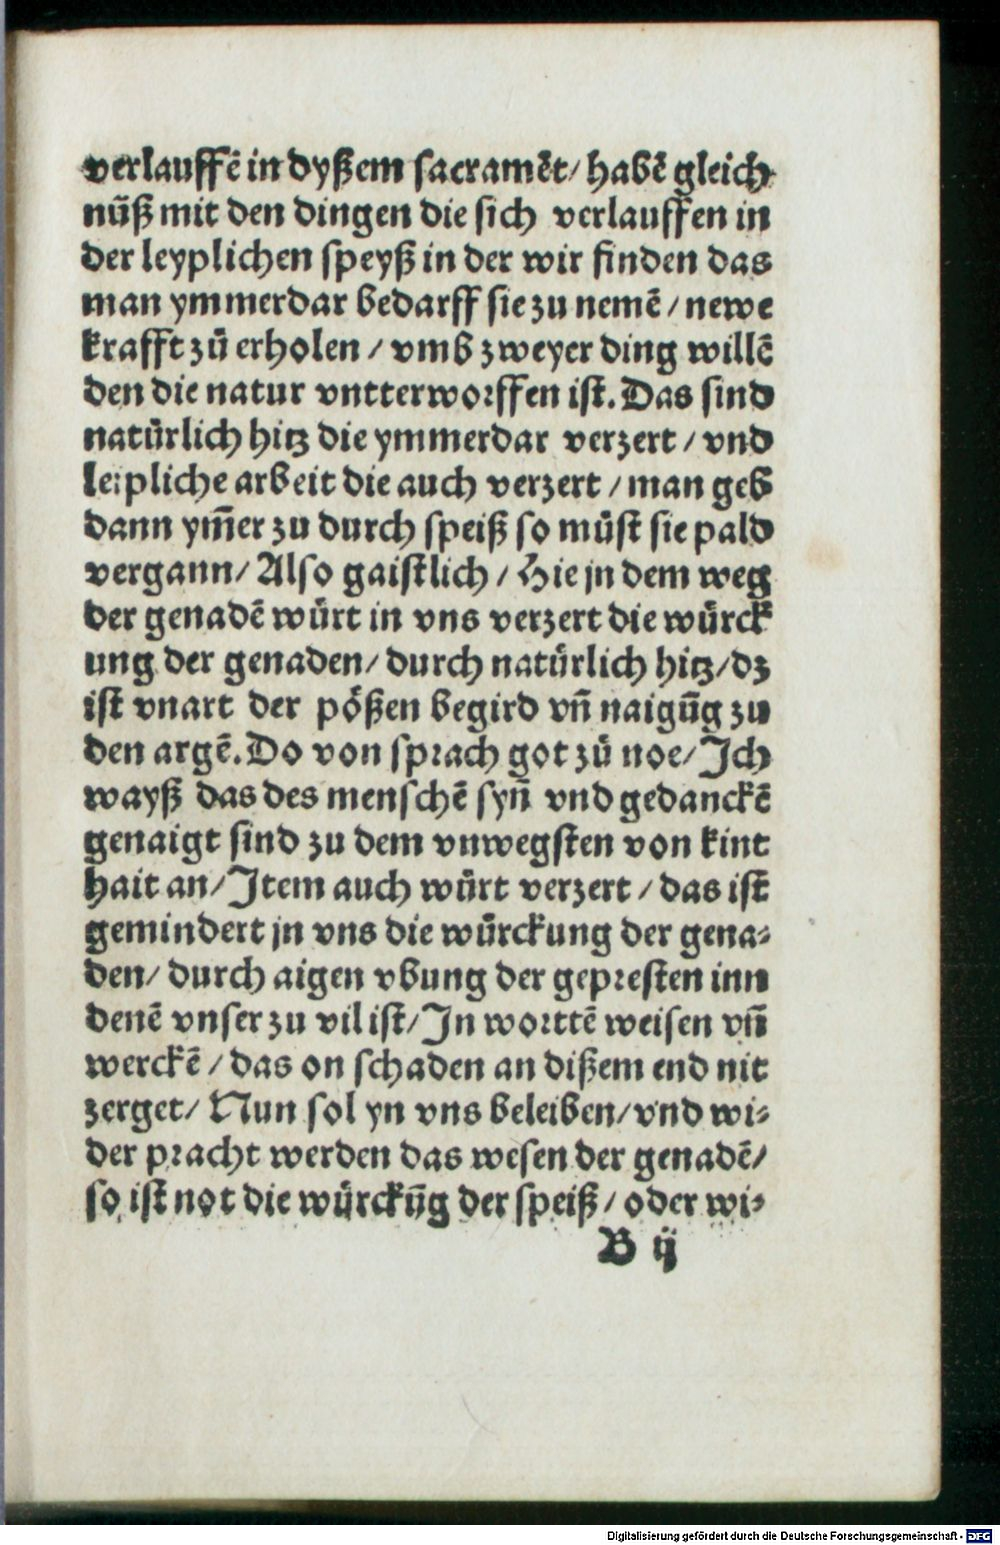 verlauffē in dyßem sacramēt/ habē gleich
nūß mit den dingen die sich verlauffen in
der leyplichen speyß in der wir finden das
man ymmerdar bedarff sie zu nemē / newe
krafft zů erholen / vmb zweyer ding willē
den die natur vntterworffen ist. Das sind
natürlich hitz die ymmerdar verzert / vnd
leipliche arbeit die auch verzert / man geb
dann ym̄er zu durch speiß so müst sie pald
vergann/ Also gaistlich / Hie jn dem weg
der genadē würt in vns verzert die würck
ung der genaden/ durch natürlich hitz/ dz
ist vnart der pößen begird vn̄ naigūg zu
den argē. Do von sprach got zů noe/ Ich
wayß das des menschē syn̄ vnd gedanckē
genaigt sind zu dem vnwegsten von kint
hait an/ Item auch würt verzert / das ist
gemindert jn vns die würckung der gena-
den/ durch aigen vbung der gepresten inn
denē vnser zu vil ist/ In worttē weisen vn̄
werckē / das on schaden an dißem end nit
zerget/ Nun sol yn vns beleiben/ vnd wi-
der pracht werden das wesen der genadē/
so ist not die würckūg der speiß / oder wi-
B ij
Digitalisierung gefördert durch die Deutsche Forschungsgemeinschaft - DFG